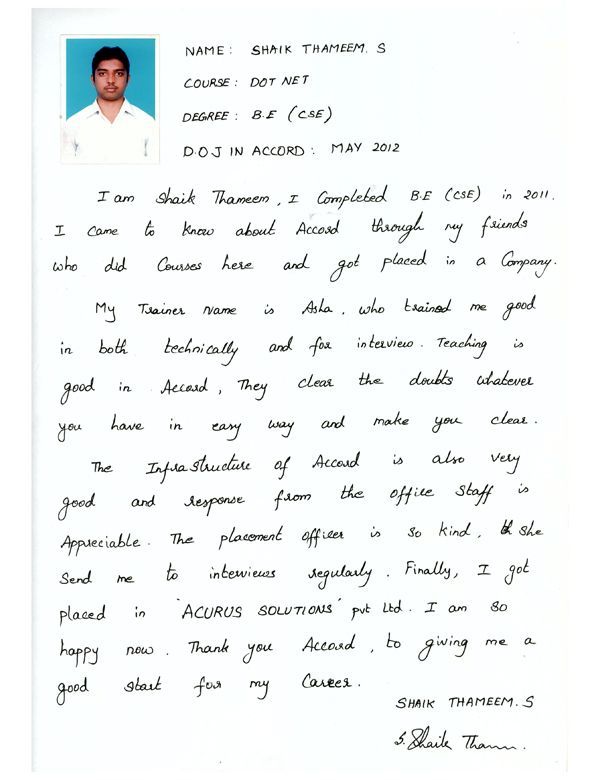 NAME : SHAIK THAMEEM. S
COURSE : DOT NET
DEGREE : B.E (CSE)
D.O.J IN ACCORD : MAY 2012
I am Shaik Thameem, I Completed B.E (CSE) in 2011.
I came to know about Accord through my friends
who did Courses here and got placed in a Company.
My Trainer name is Asha, who trained me good
in both technically and for interview. Teaching is
good in Accord, They clear the doubts whatever
you have in easy way and make you clear.
The Infrastructure of Accord is also very
good and response from the office staff is
Appreciable. The placement officer is so kind, she
Send me to interviews regularly. Finally, I got
placed in "ACURUS SOLUTIONS" pvt Ltd. I am so
happy now. Thank you Accord, to giving me a
good start for my Career.
SHAIK THAMEEM. S
S. Shaik Tham